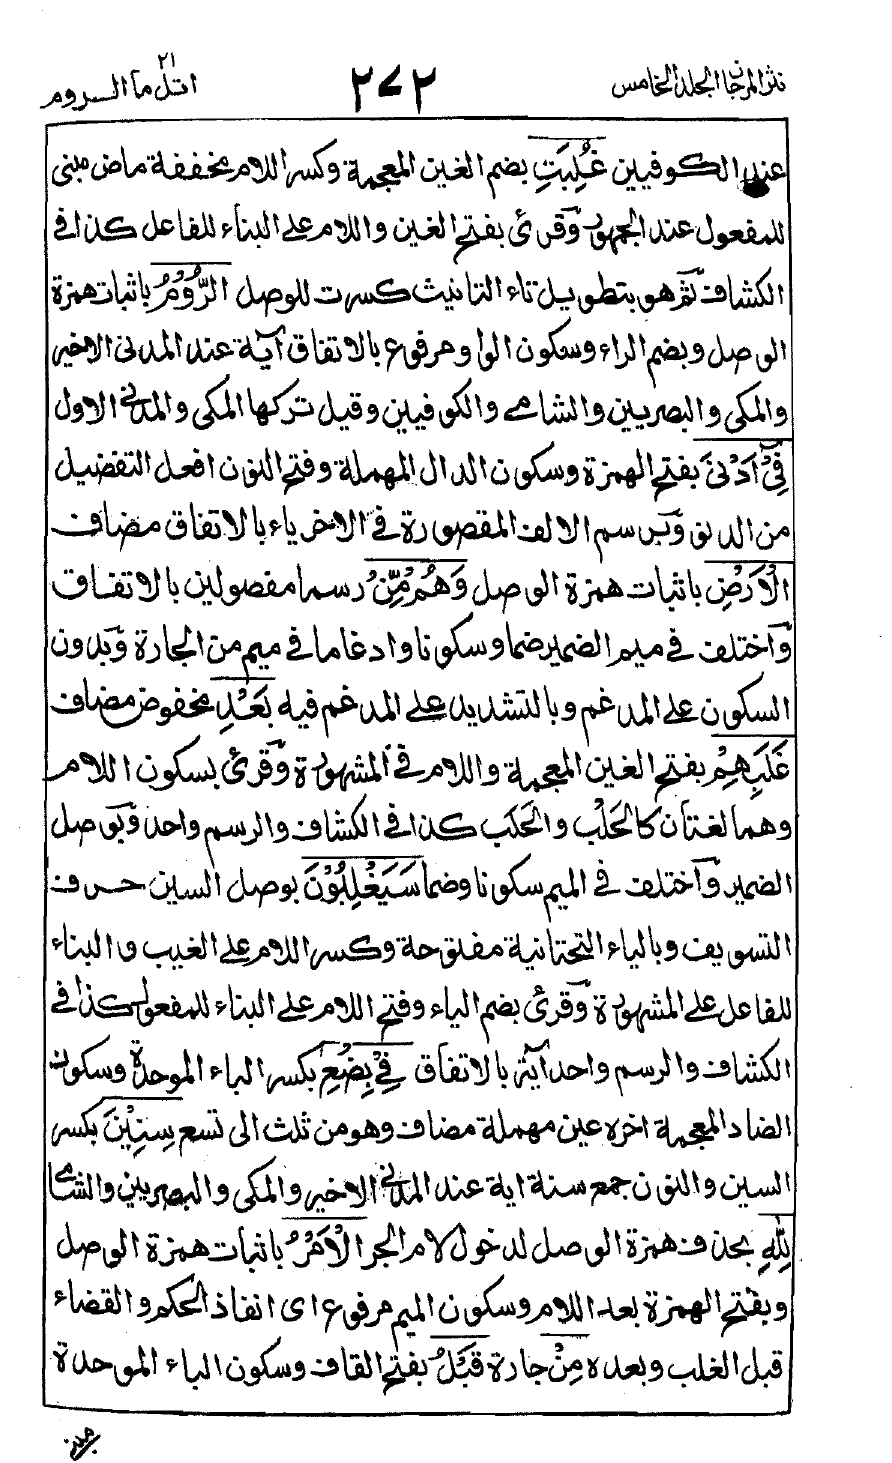 نثر المرجان الجلد الخامس ٢٧٢ اتل ما ٢١ الروم
عند الكوفيين غُلِبَتِ بضم الغين المعجمة وكسر اللام مخففة ماض مبنى
للمفعول عند الجمهور وقرئ بفتح الغين واللام على البناء للفاعل كذا فى
الكشاف ثم هو بتطويل تاء التانيث كسرت للوصل الرُّوْمُ باثبات همزة
الوصل وبضم الراء وسكون الواو مرفوع بالاتفاق آية عند المدنى الاخير
والمكى والبصريين والشامى والكوفيين وقيل تركها المكى والمدنى الاول
فِىْ اَدْنَى بفتح الهمزة وسكون الدال المهملة وفتح النون افعل التفضيل
من الدنو وبرسم الالف المقصورة فى الاخر ياء بالاتفاق مضاف
الْاَرْضِ باثبات همزة الوصل وَهُمْ مِّنْ رسما مفصولين بالاتفاق
واختلف فى ميم الضمير ضما وسكونا وادغاما فى ميم من الجارة وبدون
السكون على المدغم وبالتشديد على المدغم فيه بَعْدِ مخفوض مضاف
غَلَبِهِمْ بفتح الغين المعجمة واللام فى المشهورة وقرئ بسكون اللام
وهما لغتان كالحَلْب والحَلَب كذا فى الكشاف والرسم واحد وبوصل
الضمير واختلف فى الميم سكونا وضما سَيَغْلِبُوْنَ بوصل السين حرف
التسويف وبالياء التحتانية مفتوحة وكسر اللام على الغيب والبناء
للفاعل على المشهورة وقرئ بضم الياء وفتح اللام على البناء للمفعول كذا فى
الكشاف والرسم واحد آية بالاتفاق فِىْ بِضْعِ بكسر الباء الموحدة وسكون
الضاد المعجمة اخره عين مهملة مضاف وهو من ثلث الى تسع سِنِيْنَ بكسر
السين والنون جمع سنة اية عند المدنى الاخير والمكى والبصريين والشامى
لِلّٰهِ بحذف همزة الوصل لدخول لام الجر الْاَمْرُ باثبات همزة الوصل
وبفتح الهمزة بعد اللام وسكون الميم مرفوع اى انفاذ الحكم والقضاء
قبل الغلب وبعده مِنْ جارة قَبْلُ بفتح القاف وسكون الباء الموحدة